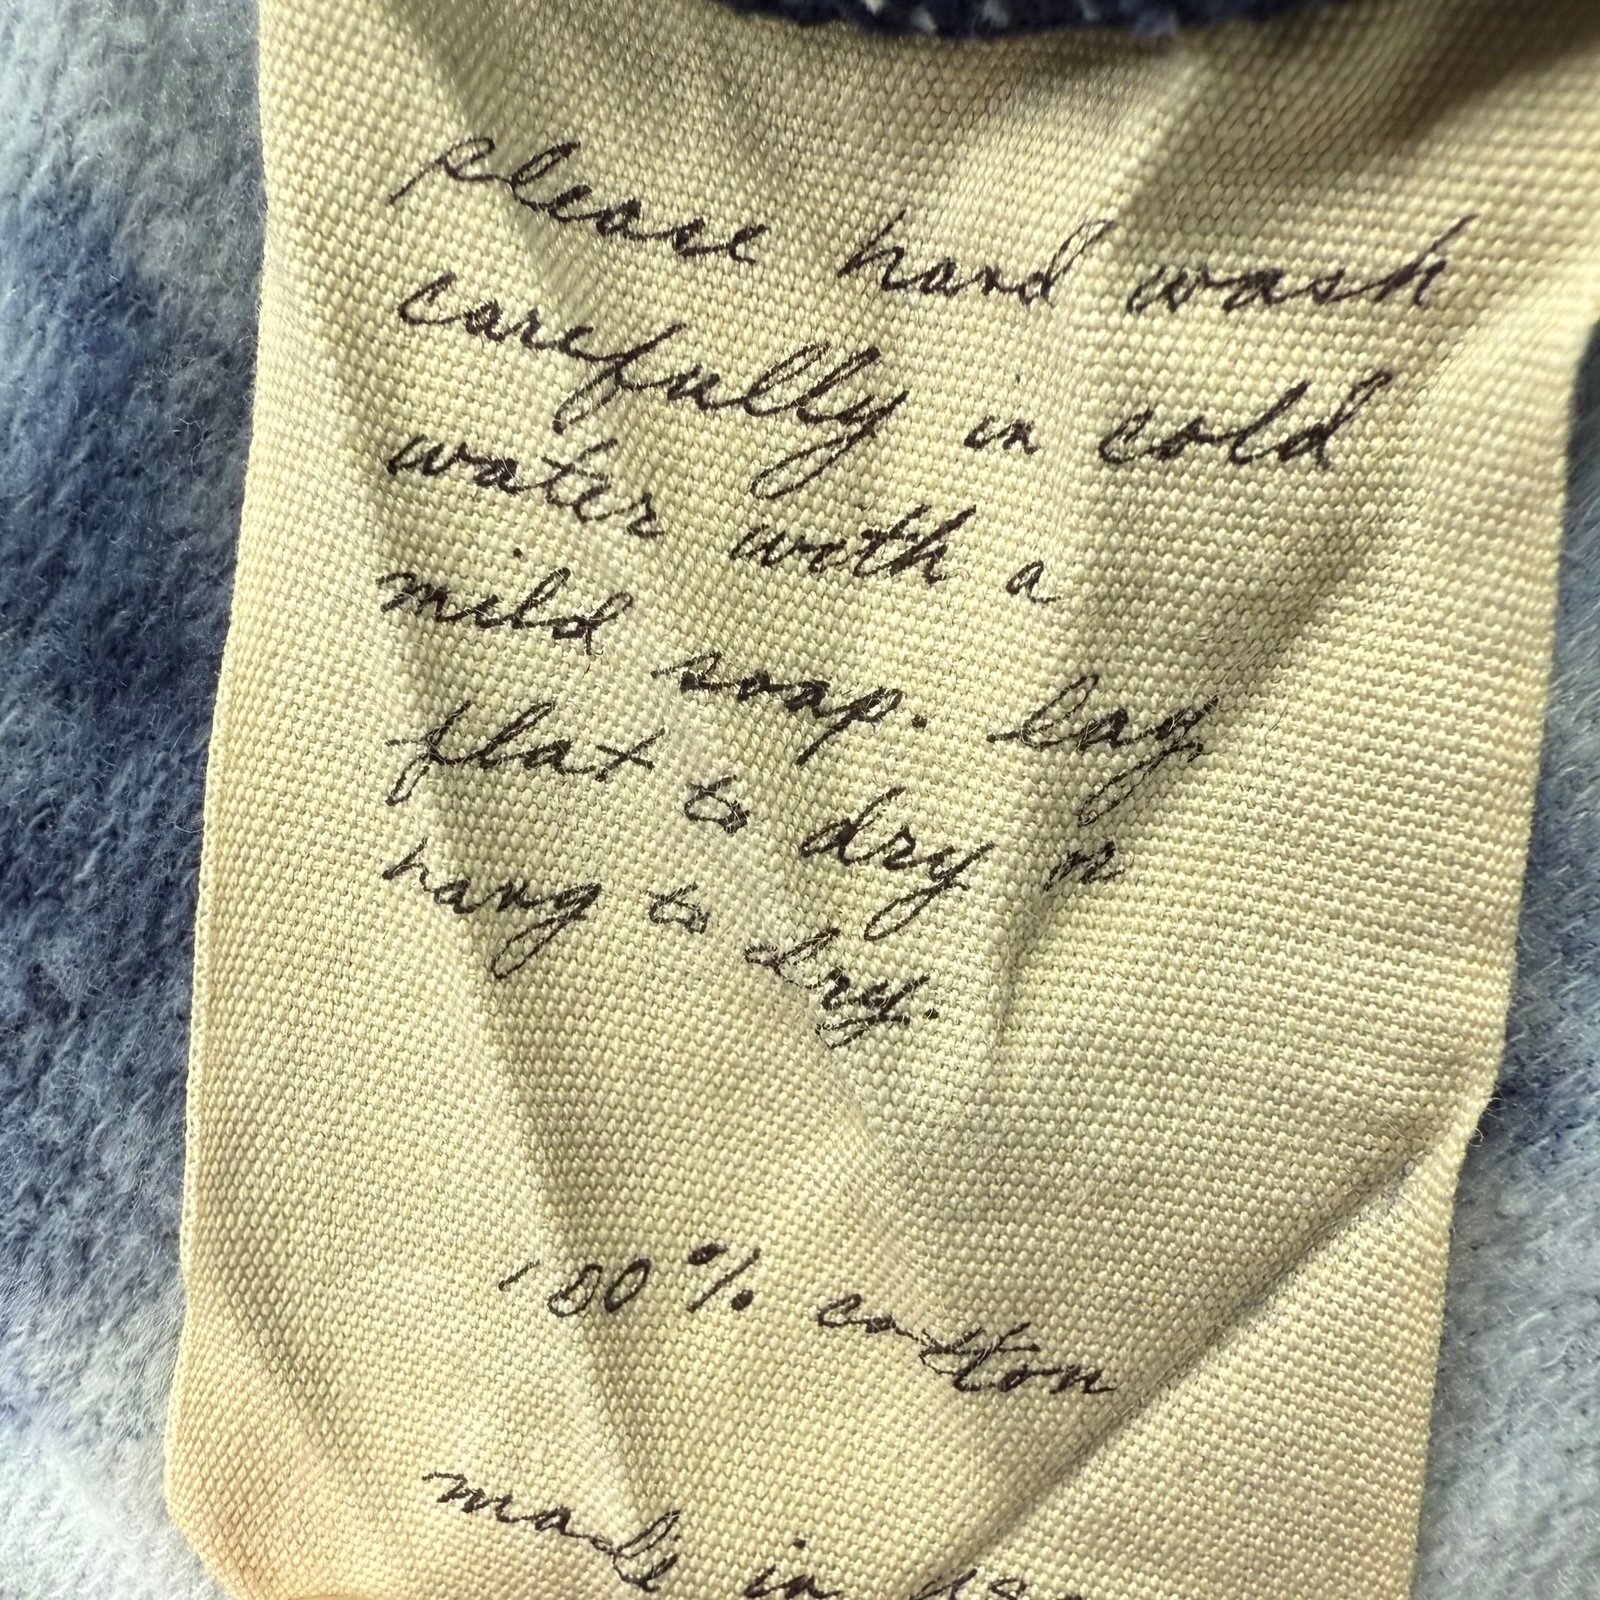 please hand wash
carefully in cold
water with a
mild soap. lay
flat to dry or
hang to dry.
100% cotton
made in